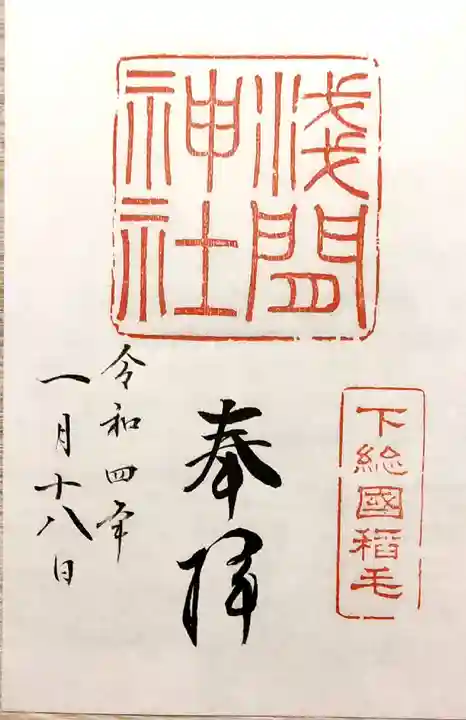 淺間
神社
下総國稲毛
奉拝
令和四年
一月十八日